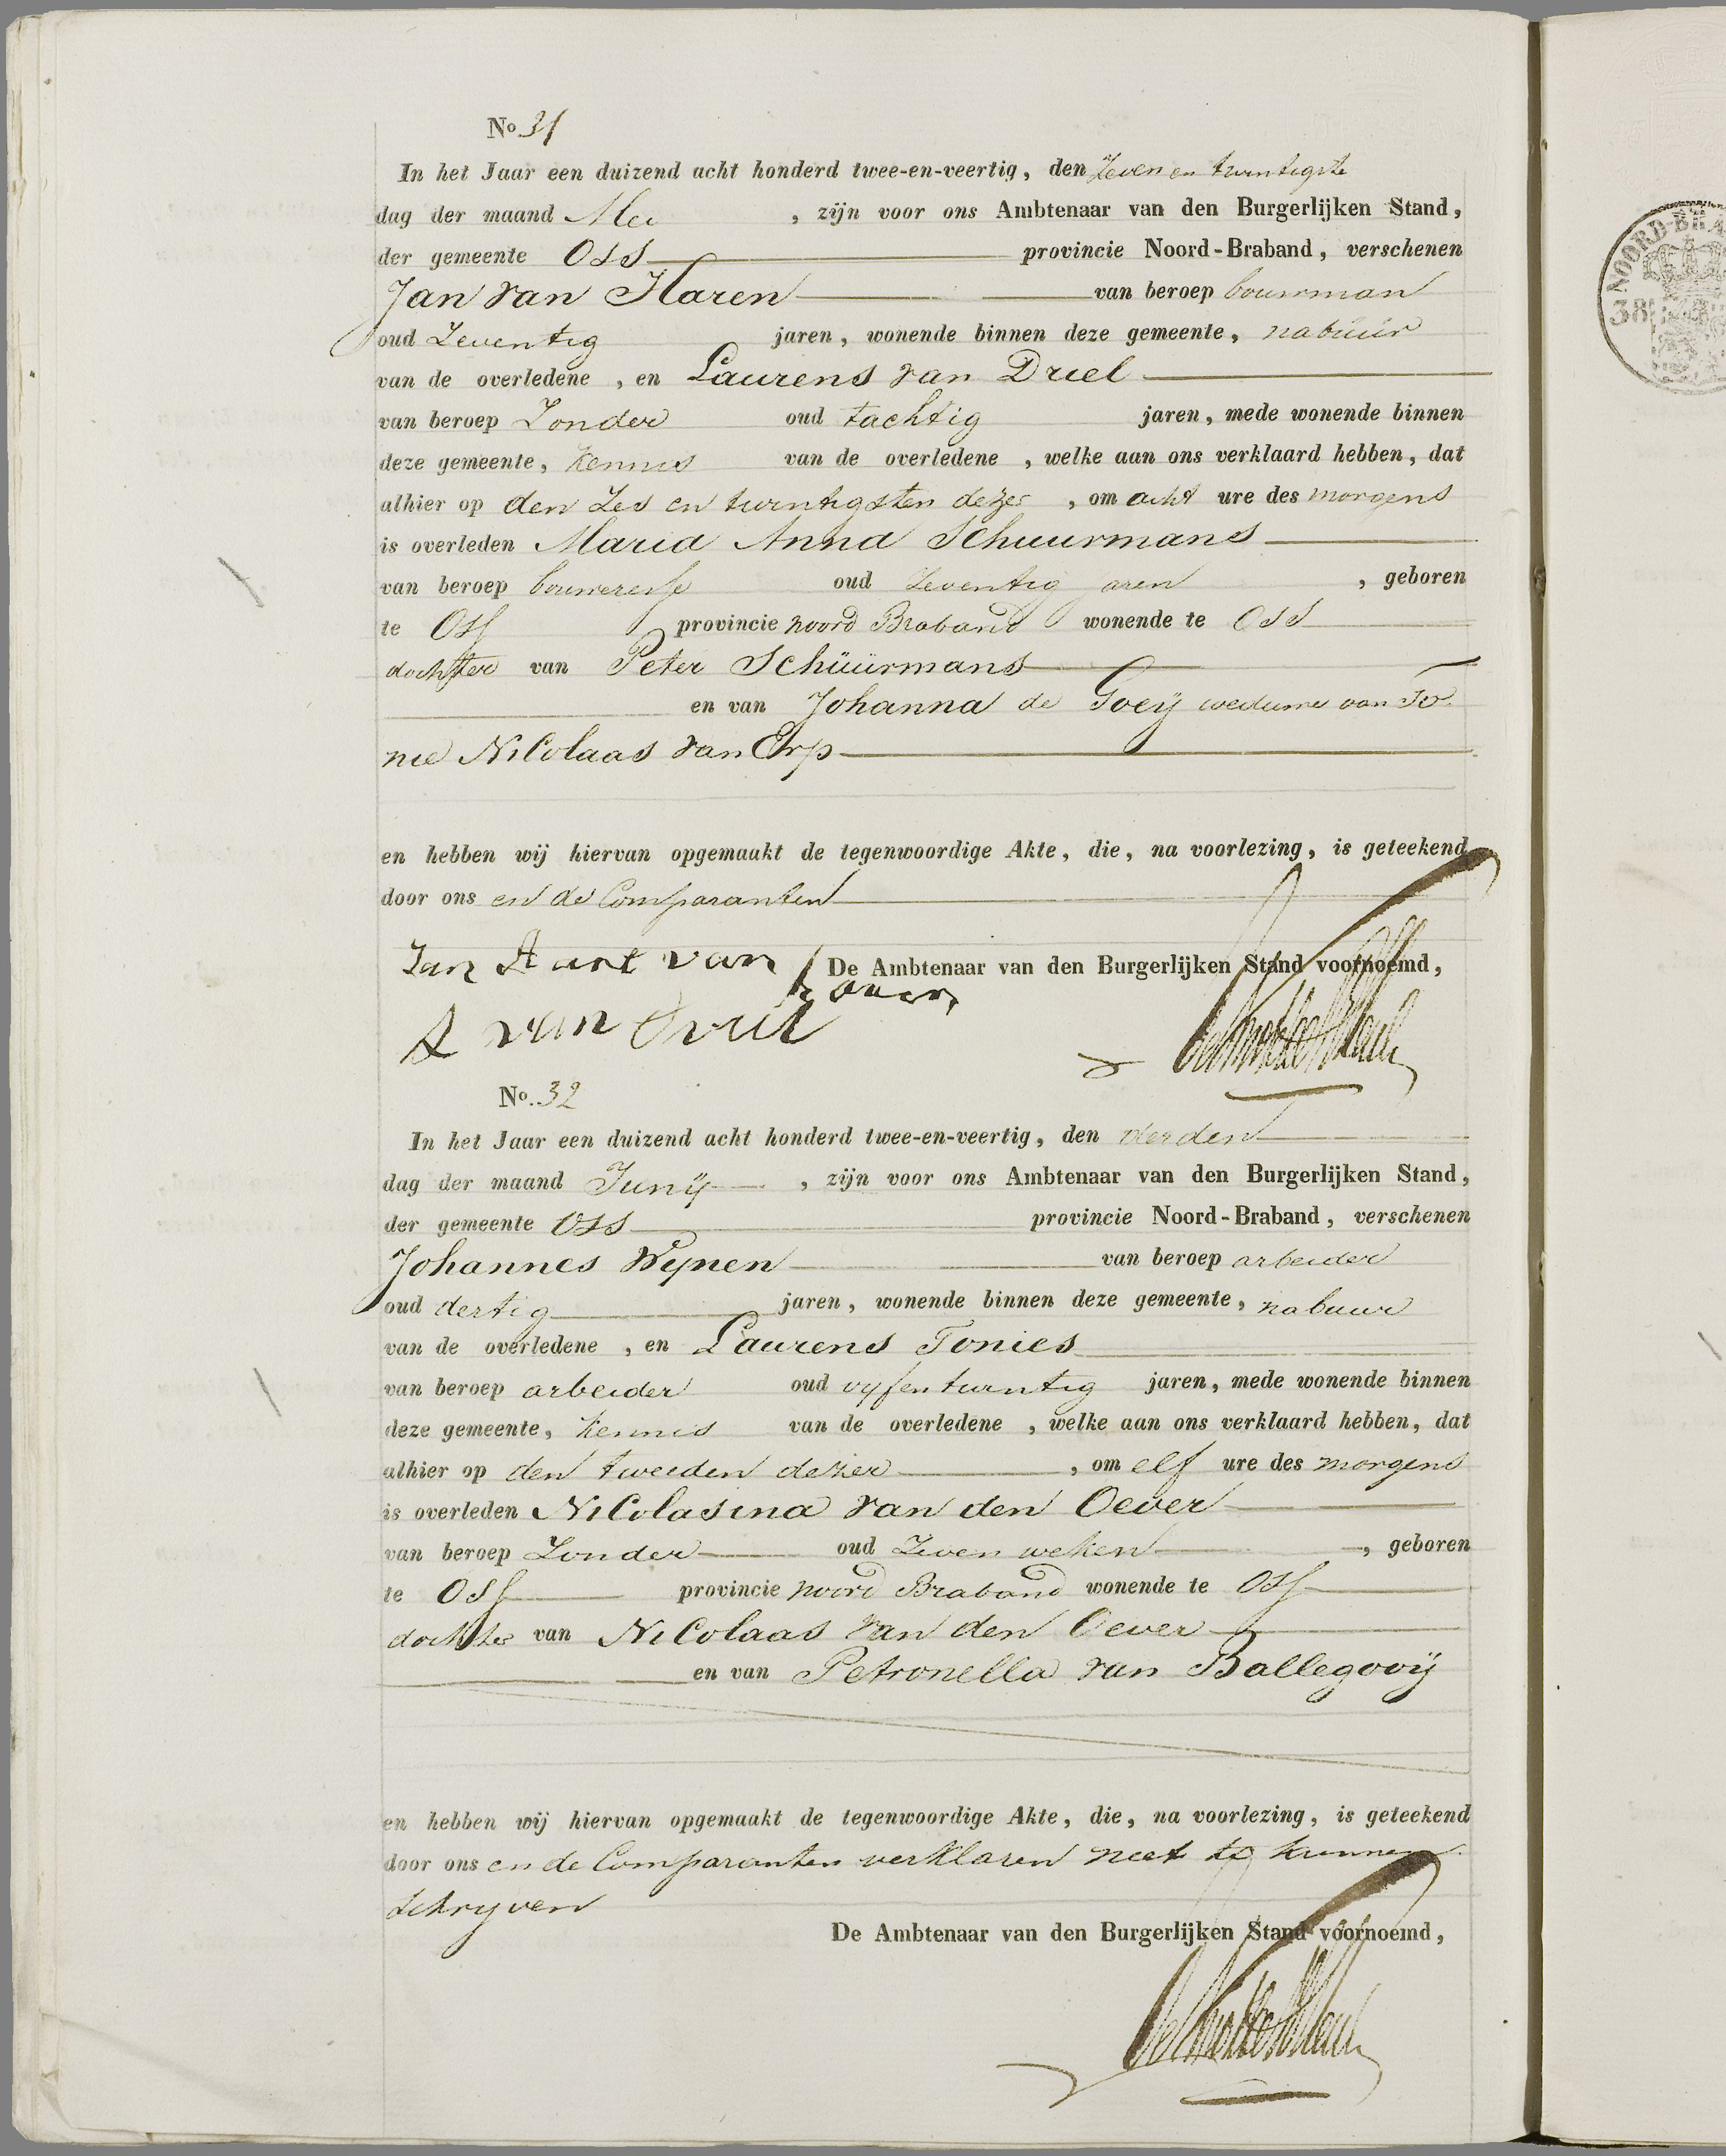 No. 31
In het Jaar een duizend acht honderd twee-en-veertig, den Zeven en twintigste
dag der maand Mei , zijn voor ons Ambtenaar van den Burgerlijken Stand,
der gemeente Oss provincie Noord-Braband, verschenen
Jan van Haren van beroep bouwman
oud Zeventig jaren, wonende binnen deze gemeente, nabüür
van de overledene , en Laurens van Driel
van beroep Zonder oud tachtig jaren, mede wonende binnen
deze gemeente, kennis van de overledene , welke aan ons verklaard hebben, dat
alhier op den Zes en twintigsten dezer , om acht ure des morgens
is overleden Maria Anna Schuurmans
van beroep bouweresse oud Zeventig jaren , geboren
te Oss provincie noord Braband wonende te Oss
dochter van Peter Schüürmans
en van Johanna de Goeij weduwe van To
nie Nicolaas van Erp
en hebben wij hiervan opgemaakt de tegenwoordige Akte, die, na voorlezing, is geteekend
door ons en de Comparanten
Jan Aart van
De Ambtenaar van den Burgerlijken Stand voornoemd,
haren
L van Driel
No. 32
In het Jaar een duizend acht honderd twee-en-veertig, den derden
dag der maand Junij , zijn voor ons Ambtenaar van den Burgerlijken Stand,
der gemeente Oss provincie Noord-Braband, verschenen
Johannes Wijnen van beroep arbeider
oud dertig jaren, wonende binnen deze gemeente, nabuur
van de overledene , en Laurens Tonies
van beroep arbeider oud vyfentwintig jaren, mede wonende binnen
deze gemeente, kennis van de overledene , welke aan ons verklaard hebben, dat
alhier op den tweeden dezer , om elf ure des morgens
is overleden Nicolasina van den Oever
van beroep Zonder oud Zeven weken , geboren
te Oss provincie noord Braband wonende te Oss
dochter van Nicolaas van den Oever
en van Petronella van Ballegooij
en hebben wij hiervan opgemaakt de tegenwoordige Akte, die, na voorlezing, is geteekend
door ons en de Comparanten verklaren niet te kunnen
schryven
De Ambtenaar van den Burgerlijken Stand voornoemd,
NOORD-BRA
38